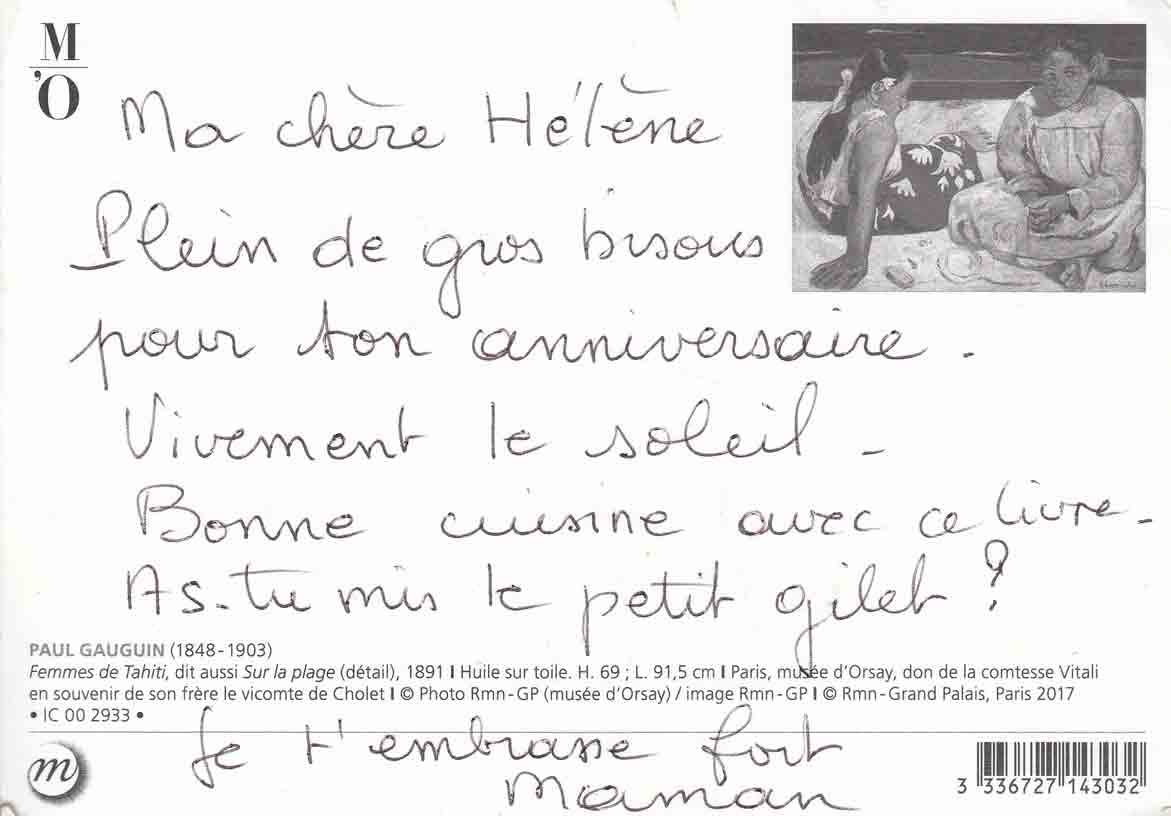 M
'O
Ma chère Hélène
Plein de gros bisous
pour ton anniversaire.
Vivement le soleil -
Bonne cuisine avec ce livre -
As-tu mis le petit gilet ?
PAUL GAUGUIN (1848-1903)
Femmes de Tahiti, dit aussi Sur la plage (détail), 1891 I Huile sur toile. H. 69 ; L. 91,5 cm I Paris, musée d'Orsay, don de la comtesse Vitali
en souvenir de son frère le vicomte de Cholet I © Photo Rmn-GP (musée d'Orsay) / image Rmn-GP I © Rmn-Grand Palais, Paris 2017
• IC 00 2933 •
Je t'embrasse fort
Maman
m
3 336727 143032